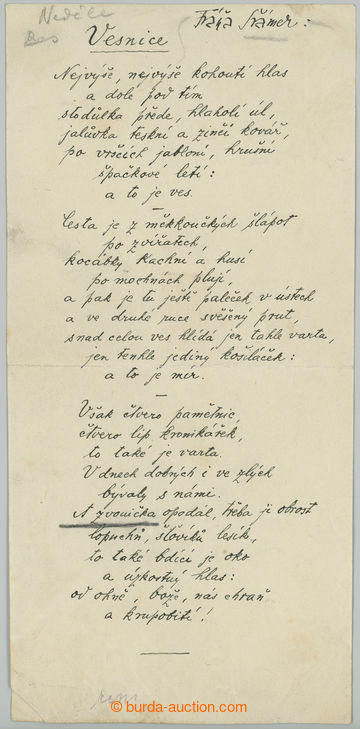 Neděle
Bes
Fráňa Šrámek:
Vesnice
Nejvýše, nejvýše kohoutí hlas
a dole pod tím
stodůlka přede, hlaholí úl,
jalůvka teskní a zvučí kovář,
po vršcích jabloní, hrušní
špačkové letí:
a to je ves.
Cesta je z měkkoučkých šlápot
po zvířatech,
kocábky kachní a husí
po mocnách plují
a pak je tu ještě paleček v ústech
a ve druhé ruce svěšený prut,
snad celou ves hlídá jen tahle varta,
jen tenhle jediný košiláček:
a to je mír.
Však čtvero pamětnic,
čtvero lip kronikářek,
to také je varta.
V dnech dobrých i ve zlých
bývaly s námi.
A zvonička opodál, třeba ji obrost
lopuchů, šťovíků lesík,
to také bdící je oko
a úzkostný hlas:
od ohně, bože, nás chraň
a krupobití!
© burda-auction.com